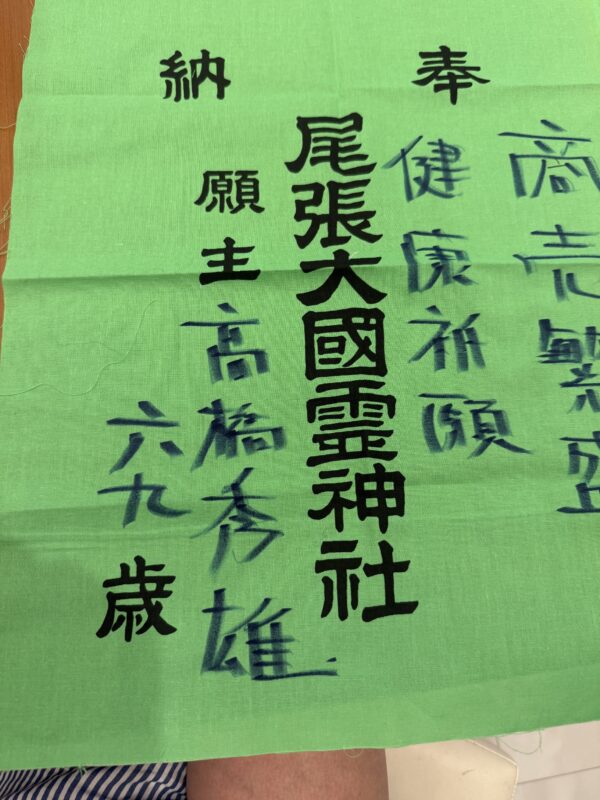 奉納
商売繁盛
健康祈願
尾張大國霊神社
願主高橋秀雄
六九歳